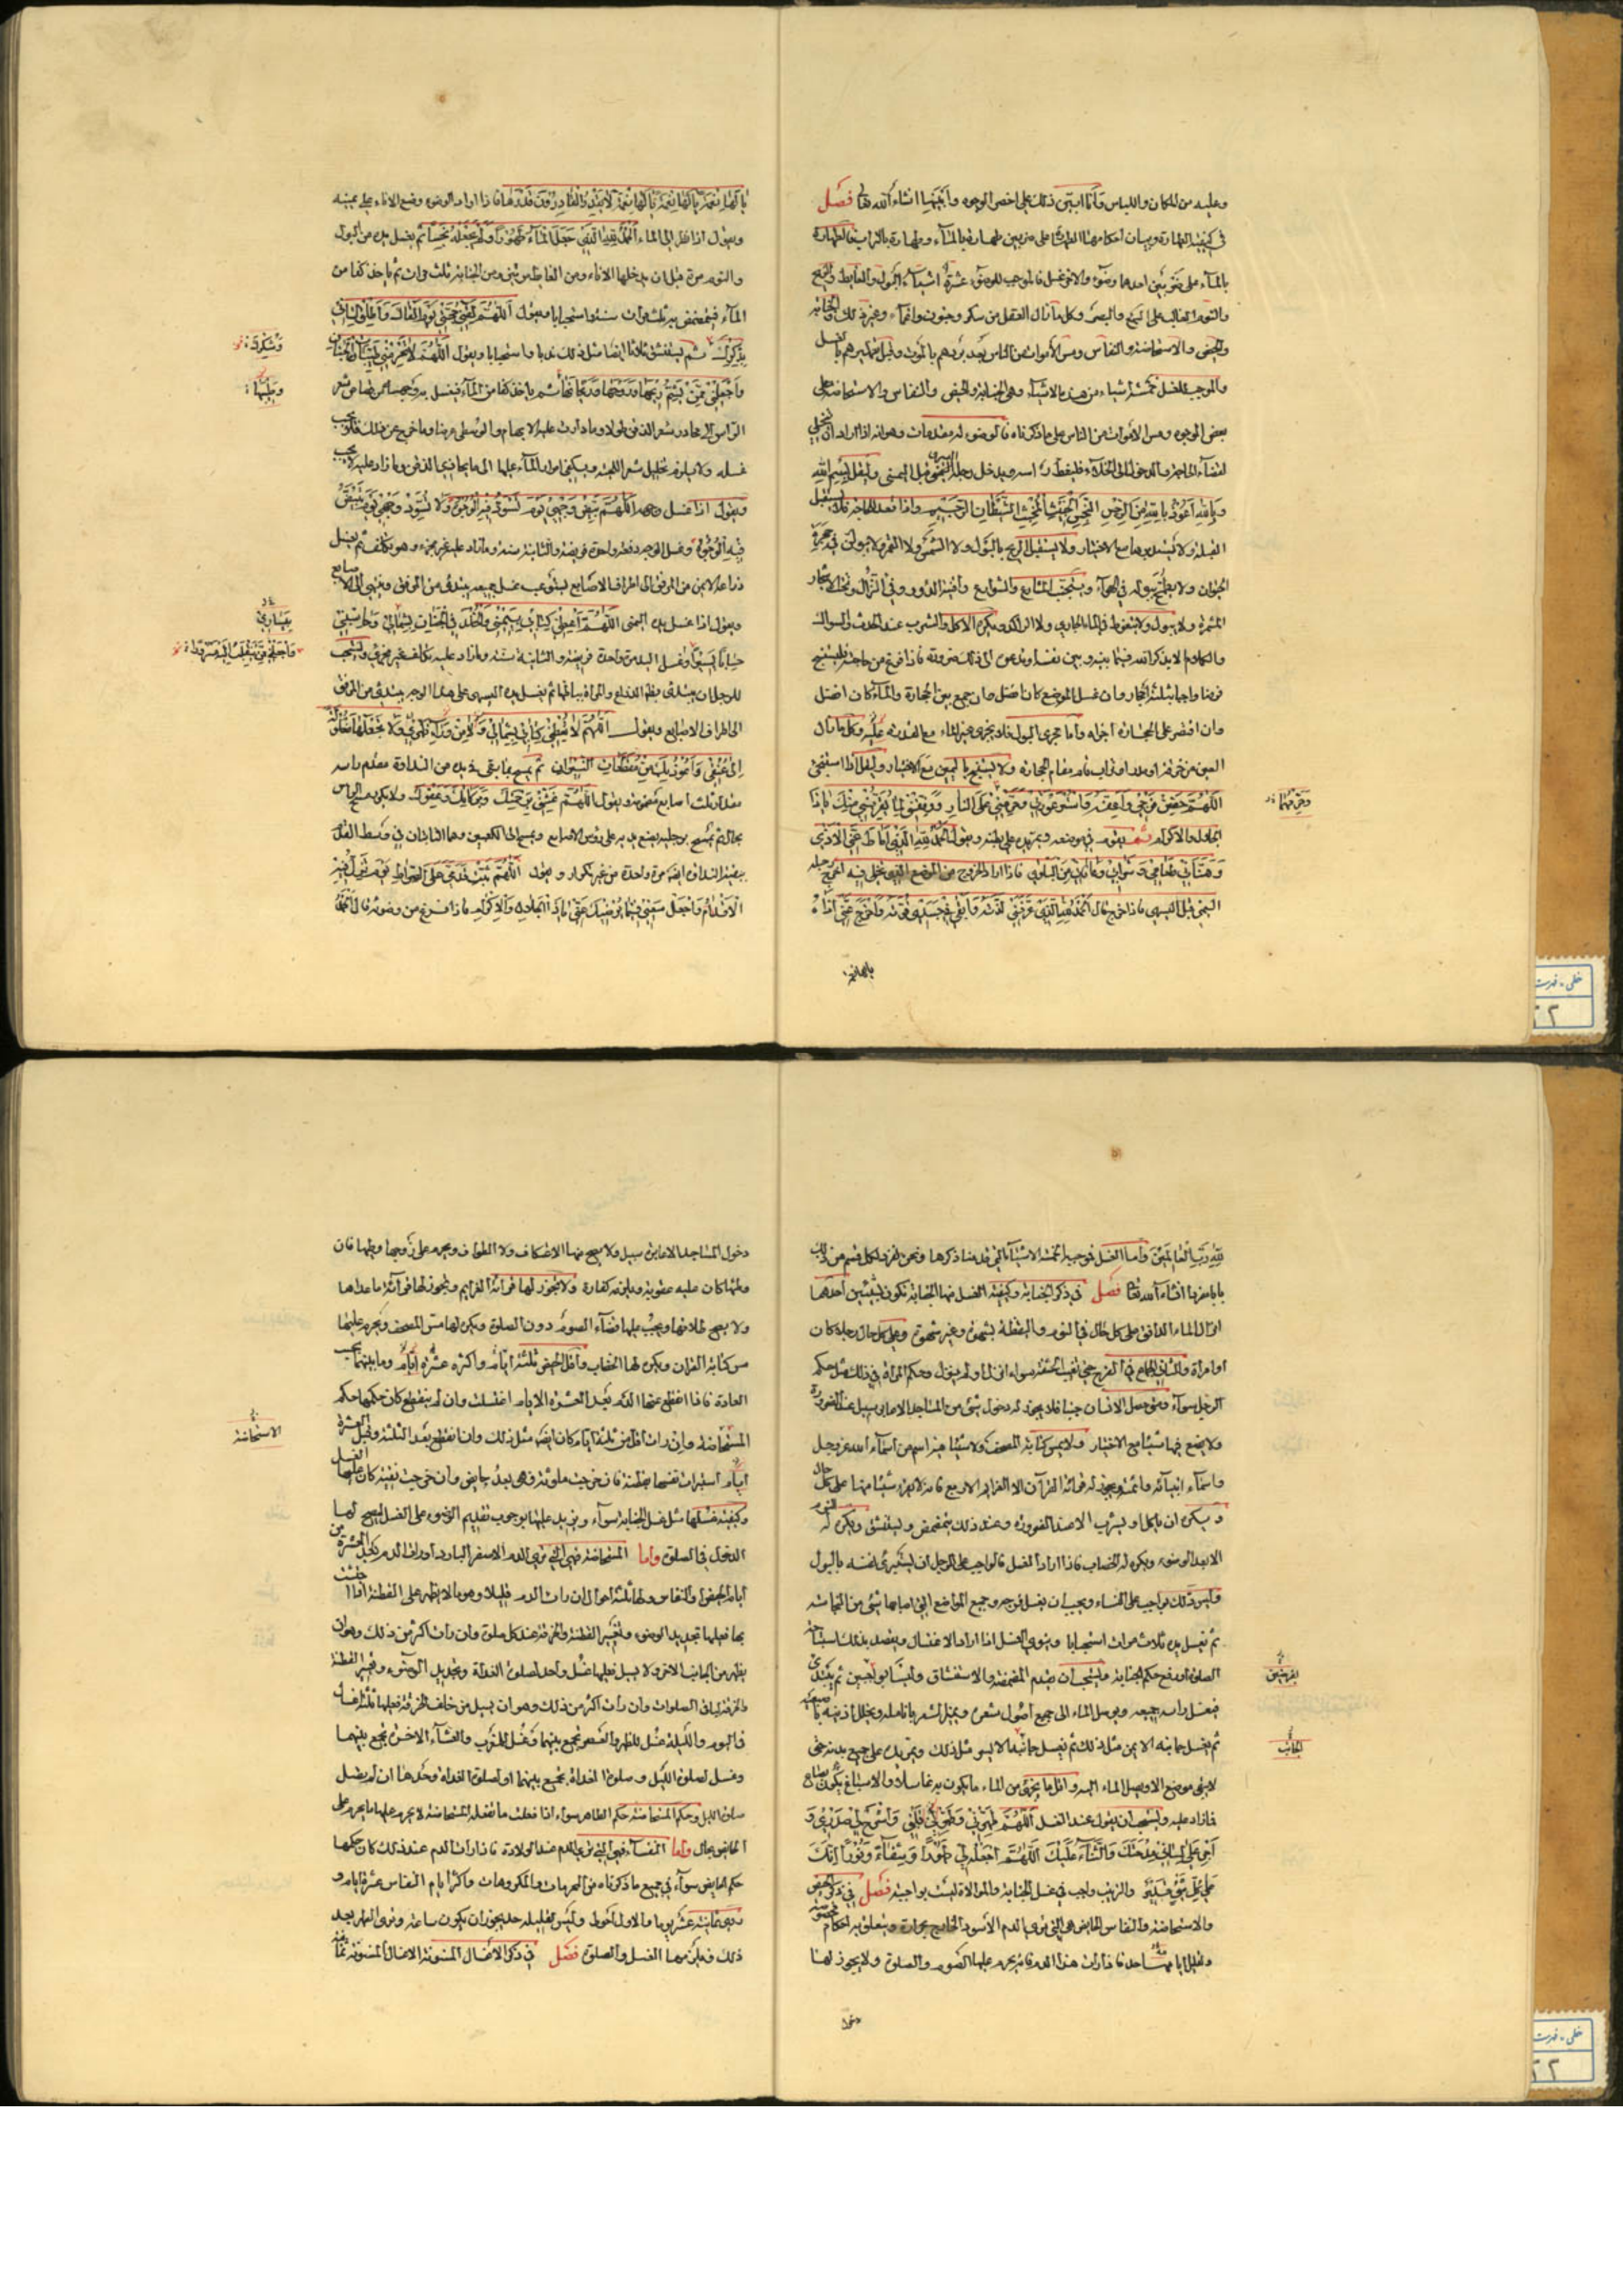 وعليه من المكان واللباس وأنا ابين ذلك على اخصر الوجوه وأبينها انشاء الله تعالى فصل
في كيفية الطهارة وبيان احكامها الطهارة على ضربين طهارة بالماء وطهارة بالتراب فالطهارة
بالماء على ضربين احدهما وضوء والاخر غسل فالموجب للوضوء عشرة اشياء البول والغايط والريح
والنوم الغالب على السمع والبصر وكل ما ازال العقل من سكر وجنون واغماء وغير ذلك والجنابة
والحيض والاستحاضة والنفاس ومس الأموات من الناس بعد بردهم بالموت وقبل تطهيرهم بالغسل
والموجب للغسل خمسة اشياء من هذه الاشياء وهي الجنابة والحيض والنفاس والاستحاضة على
بعض الوجوه ومس الاموات من الناس على ما ذكرناه فالوضوء له مقدمات وهو انه اذا اراد ان يتخلى
لقضاء الحاجة والدخول الى الخلاء فليغط راسه ويدخل رجله اليسرى قبل اليمنى وليقل بسم الله
وبالله أعوذ بالله من الرجس النجس الخبيث المخبث الشيطان الرجيم واذا قعد للحاجة فلا يستقبل
القبلة ولا يستدبرها مع الاختيار ولا يستقبل الريح بالبول ولا الشمس ولا القمر ولا يبولن في حجرة
الحيوان ولا يطمح ببوله في الهواء ويتجنب المشارع والشوارع وافنية الدور وفي النزال وتحت الاشجار
المثمرة ولا يبول ولا يتغوط في الماء الجاري ولا الراكد ويكره الاكل والشرب عند الحدث والسواك
والكلام الا بذكر الله فيما بينه وبين نفسه او تدعوه الى ذلك ضرورة فاذا فرغ من حاجته فليستنج
فرضا واجبا بثلثة احجار وان غسل الموضع كان افضل وان جمع بين الحجارة والماء كان افضل
وان اقتصر على الحجارة اجزاه وأما مجرى البول فلا يجزى غير الماء مع القدرة عليه وكل ما ازال
العين من خرقة او مدر او تراب قام مقام الحجارة ولا يستنج باليمين مع الاختيار وليقل اذا استنجى
اللهم حصن فرجي واعفه واستر عورتي وحرمني على النار ووفقني لما يقربني منك يا ذا
وحرمهما
الجلال والاكرام ثم يقوم من موضعه ويمر يده على بطنه ويقول الحمد لله الذي اماط عني الاذى
وهنأني طعامي وشرابي وعافاني من البلوى فاذا اراد الخروج من الموضع الذي تخلى فيه اخرج رجله
اليمنى قبل اليسرى فاذا خرج قال الحمد لله الذي عرفني لذته وابقى في جسدي قوته واخرج عني اذاه
يا لها نعمة
يا لها نعمة يا لها نعمة يا لها نعمة لا يقدر القادرون قدرها فاذا اراد الوضوء وضع الاناء على يمينه
ويقول اذا نظر الى الماء الحمد لله الذي جعل الماء طهورا ولم يجعله نجسا ثم يغسل يده من البول
والنوم مرة قبل ان يدخلها الاناء ومن الغايط مرتين ومن الجنابة ثلث مرات ثم ياخذ كفا من
الماء فيتمضمض به ثلث مرات سنة واستحبابا ويقول اللهم لقني حجتي يوم القاك واطلق لساني
بذكرك ثم يستنشق ثلاثا ايضا مثل ذلك ندبا واستحبابا ويقول اللهم لا تحرمني طيبات الجنان
وشكرك
واجعلني ممن يشم ريحها وروحها وريحانها ثم ياخذ كفا من الماء فيغسل به وجهه من قصاص شعر
وطيبها
الراس الى محادر شعر الذقن طولا وما دارت عليه الابهام والوسطى عرضا وما خرج عن ذلك فلا يجب
غسله ولا يلزمه تخليل شعر اللحية ويكفي امرار الماء عليها الى ما يحاذي الذقن وما زاد عليه لا يجب
ويقول اذا غسل وجهه اللهم بيض وجهي يوم تسود فيه الوجوه ولا تسود وجهي يوم تبيض
فيه الوجوه وغسل الوجه دفعة واحدة فريضة والثانية سنة وما زاد عليه غير مجزء وهو تكلف ثم يغسل
ذراعه الايمن من المرفق الى اطراف الاصابع يستوعب غسل جميعه يبتدئ من المرفق وينتهي الى الاصابع
ويقول اذا غسل يده اليمنى اللهم اعطني كتابي بيميني والخلد في الجنان بشمالي وحاسبني
بيساري
حسابا يسيرا وغسل اليد مرة واحدة فريضة والثانية سنة وما زاد عليه تكلف غير مجزي ويستحب
واجعلني ممن ينقلب الى اهله مسرورا
للرجل ان يبتدئ بظهر الذراع والمراة بباطنها ثم يغسل يده اليسرى على هذا الوجه يبتدئ من المرفق
الى اطراف الاصابع ويقول اللهم لا تعطني كتابي بشمالي ولا من وراء ظهري ولا تجعلها مغلولة
الى عنقي واعوذ بك من مقطعات النيران ثم يمسح بما بقي في يده من النداوة مقدم راسه
مقدار ثلث اصابع مضمومة ويقول اللهم غشني برحمتك وبركاتك وعفوك ولا يكرر مسح الراس
بحال ثم يمسح برجليه يضع يديه على رؤس الاصابع ويمسح الى الكعبين وهما الناتيان في وسط القدم
ببقية النداوة ايضا مرة واحدة من غير تكرار ويقول اللهم ثبت قدمي على الصراط يوم تزل فيه
الاقدام واجعل سعيي فيما يرضيك عني يا ذا الجلال والاكرام فاذا فرغ من وضوئه قال الحمد
لله رب العالمين واما الغسل فموجبه الخمسة الاشياء التي قدمنا ذكرها ونحن نفرد لكل قسم من ذلك
بابا مفردا انشاء الله تعالى فصل في ذكر الجنابة وكيفية الغسل منها الجنابة تكون بشيئين احدهما
انزال الماء الدافق على كل حال في النوم واليقظة بشهوة وغير شهوة وعلى كل حال رجلا كان
او امراة والثاني الجماع في الفرج حتى تغيب الحشفة سواء انزل او لم ينزل وحكم المراة في ذلك مثل حكم
الرجل سواء ومتى حصل الانسان جنبا فلا يجوز له دخول شئ من المساجد الا عابر سبيل عند الضرورة
ولا يضع فيها شيئا مع الاختيار ولا يمس كتابة المصحف ولا شيئا فيه اسم من اسماء الله عز وجل
واسماء انبيائه وائمته ويجوز له قراءة القرآن الا العزايم الاربع فانه لا يقرء شيئا منها على كل حال
ويكره ان ياكل او يشرب الا عند الضرورة وعند ذلك يتمضمض ويستنشق ويكره له النوم
الا بعد الوضوء ويكره له الخضاب فاذا اراد الغسل فالواجب على الرجل ان يستبرئ نفسه بالبول
وليس ذلك بواجب على النساء ويجب ان يغسل فرجه وجميع المواضع التي اصابها شئ من النجاسة
ثم يغسل يده ثلاث مرات استحبابا وينوي الغسل اذا اراد الاغتسال ويقصد بذلك استباحة
الصلوة او رفع حكم الجنابة ويستحب ان يقدم المضمضة والاستنشاق وليسا بواجبين ثم يبتدئ
بفرضين
فيغسل راسه جميعه ويوصل الماء الى جميع اصول شعره ويميز الشعر بانامله ويخلل اذنيه باصبعيه
ثم يغسل جانبه الايمن مثل ذلك ثم يغسل جانبه الايسر مثل ذلك ويمر يده على جميع بدنه حتى
الجانب
لا يبقى موضع الا ويصل الماء اليه واقل ما يجزي من الماء ما يكون به غاسلا والاسباغ يكون بصاع
فما زاد عليه ويستحب ان يقول عند الغسل اللهم طهرني وطهر لي قلبي واشرح لي صدري و
اجر على لساني مدحتك والثناء عليك اللهم اجعله لي طهورا وشفاء ونورا انك
على كل شئ قدير والترتيب واجب في غسل الجنابة والموالاة ليست بواجبة فصل في ذكر الحيض
والاستحاضة والنفاس الحايض هي التي ترى الدم الأسود الخارج بحرارة ويتعلق به احكام مخصوصة
ولقليل ايامها حد فاذا رات هذا الدم فانه يحرم عليها الصوم والصلوة ولا يجوز لها
دخول
دخول المساجد الا عابرة سبيل ولا يصح منها الاعتكاف ولا الطواف ويحرم على زوجها وطيها فان
وطئها كان عليه عقوبة ويلزمه كفارة ولا يجوز لها قراءة العزايم ويجوز لها قراءة ما عداها
ولا يصح طلاقها ويجب عليها قضاء الصوم دون الصلوة ويكره لها مس المصحف ويحرم عليها
مس كتابة القران ويكره لها الخضاب واقل الحيض ثلثة ايام واكثره عشرة ايام وما بينهما بحسب
العادة فاذا انقطع عنها الدم بعد العشرة الايام اغتسلت وان لم ينقطع كان حكمها حكم
المستحاضة وان رات اقل من ثلثة ايام كان ايضا مثل ذلك وان انقطع بعد الثلثة وقبل العشرة
الاستحاضة
ايام استبرات نفسها بقطنة فان خرجت ملوثة فهي بعد حايض وان خرجت نقية كان عليها الغسل
وكيفية غسلها مثل غسل الجنابة سواء ويزيد عليها بوجوب تقديم الوضوء على الغسل ليصح لها
الدخول في الصلوة واما المستحاضة فهي التي ترى الدم الاصفر البارد او رات الدم بعد العشرة من
ايام الحيض او النفاس ولها ثلثة احوال ان رات الدم قليلا وهو ما لا يظهر على القطنة اذا احتشت
بها فعليها تجديد الوضوء وتغيير القطنة والخرقة عند كل صلوة وان رات اكثر من ذلك وهو ان
يظهر من الجانب الاخر ولا يسيل فعليها غسل واحد لصلوة الغداة وتجديد الوضوء وتغيير القطنة
والخرقة لباقي الصلوات وان رات اكثر من ذلك وهو ان يسيل من خلف الخرقة فعليها ثلثة اغسال
في اليوم والليلة غسل للظهر والعصر تجمع بينهما وغسل للمغرب والعشاء الاخرة تجمع بينهما
وغسل لصلوة الليل وصلوة الغداة تجمع بينهما او لصلوة الغداة وحدها ان لم تصل
صلوة الليل وحكم المستحاضة حكم الطاهر سواء اذا فعلت ما تفعله المستحاضة لا يحرم عليها ما يحرم على
الحايض بحال واما النفساء فهي التي ترى الدم عند الولادة فاذا رات الدم عند ذلك كان حكمها
حكم الحايض سواء في جميع ما ذكرناه من المحرمات والمكروهات واكثر ايام النفاس عشرة ايام و
روى ثمانية عشر يوما والاول احوط وليس لقليله حد يجوز ان يكون ساعة وترى الطهر بعد
ذلك فيلزمها الغسل والصلوة فصل في ذكر الاغسال المسنونة الاغسال المسنونة ثمانية